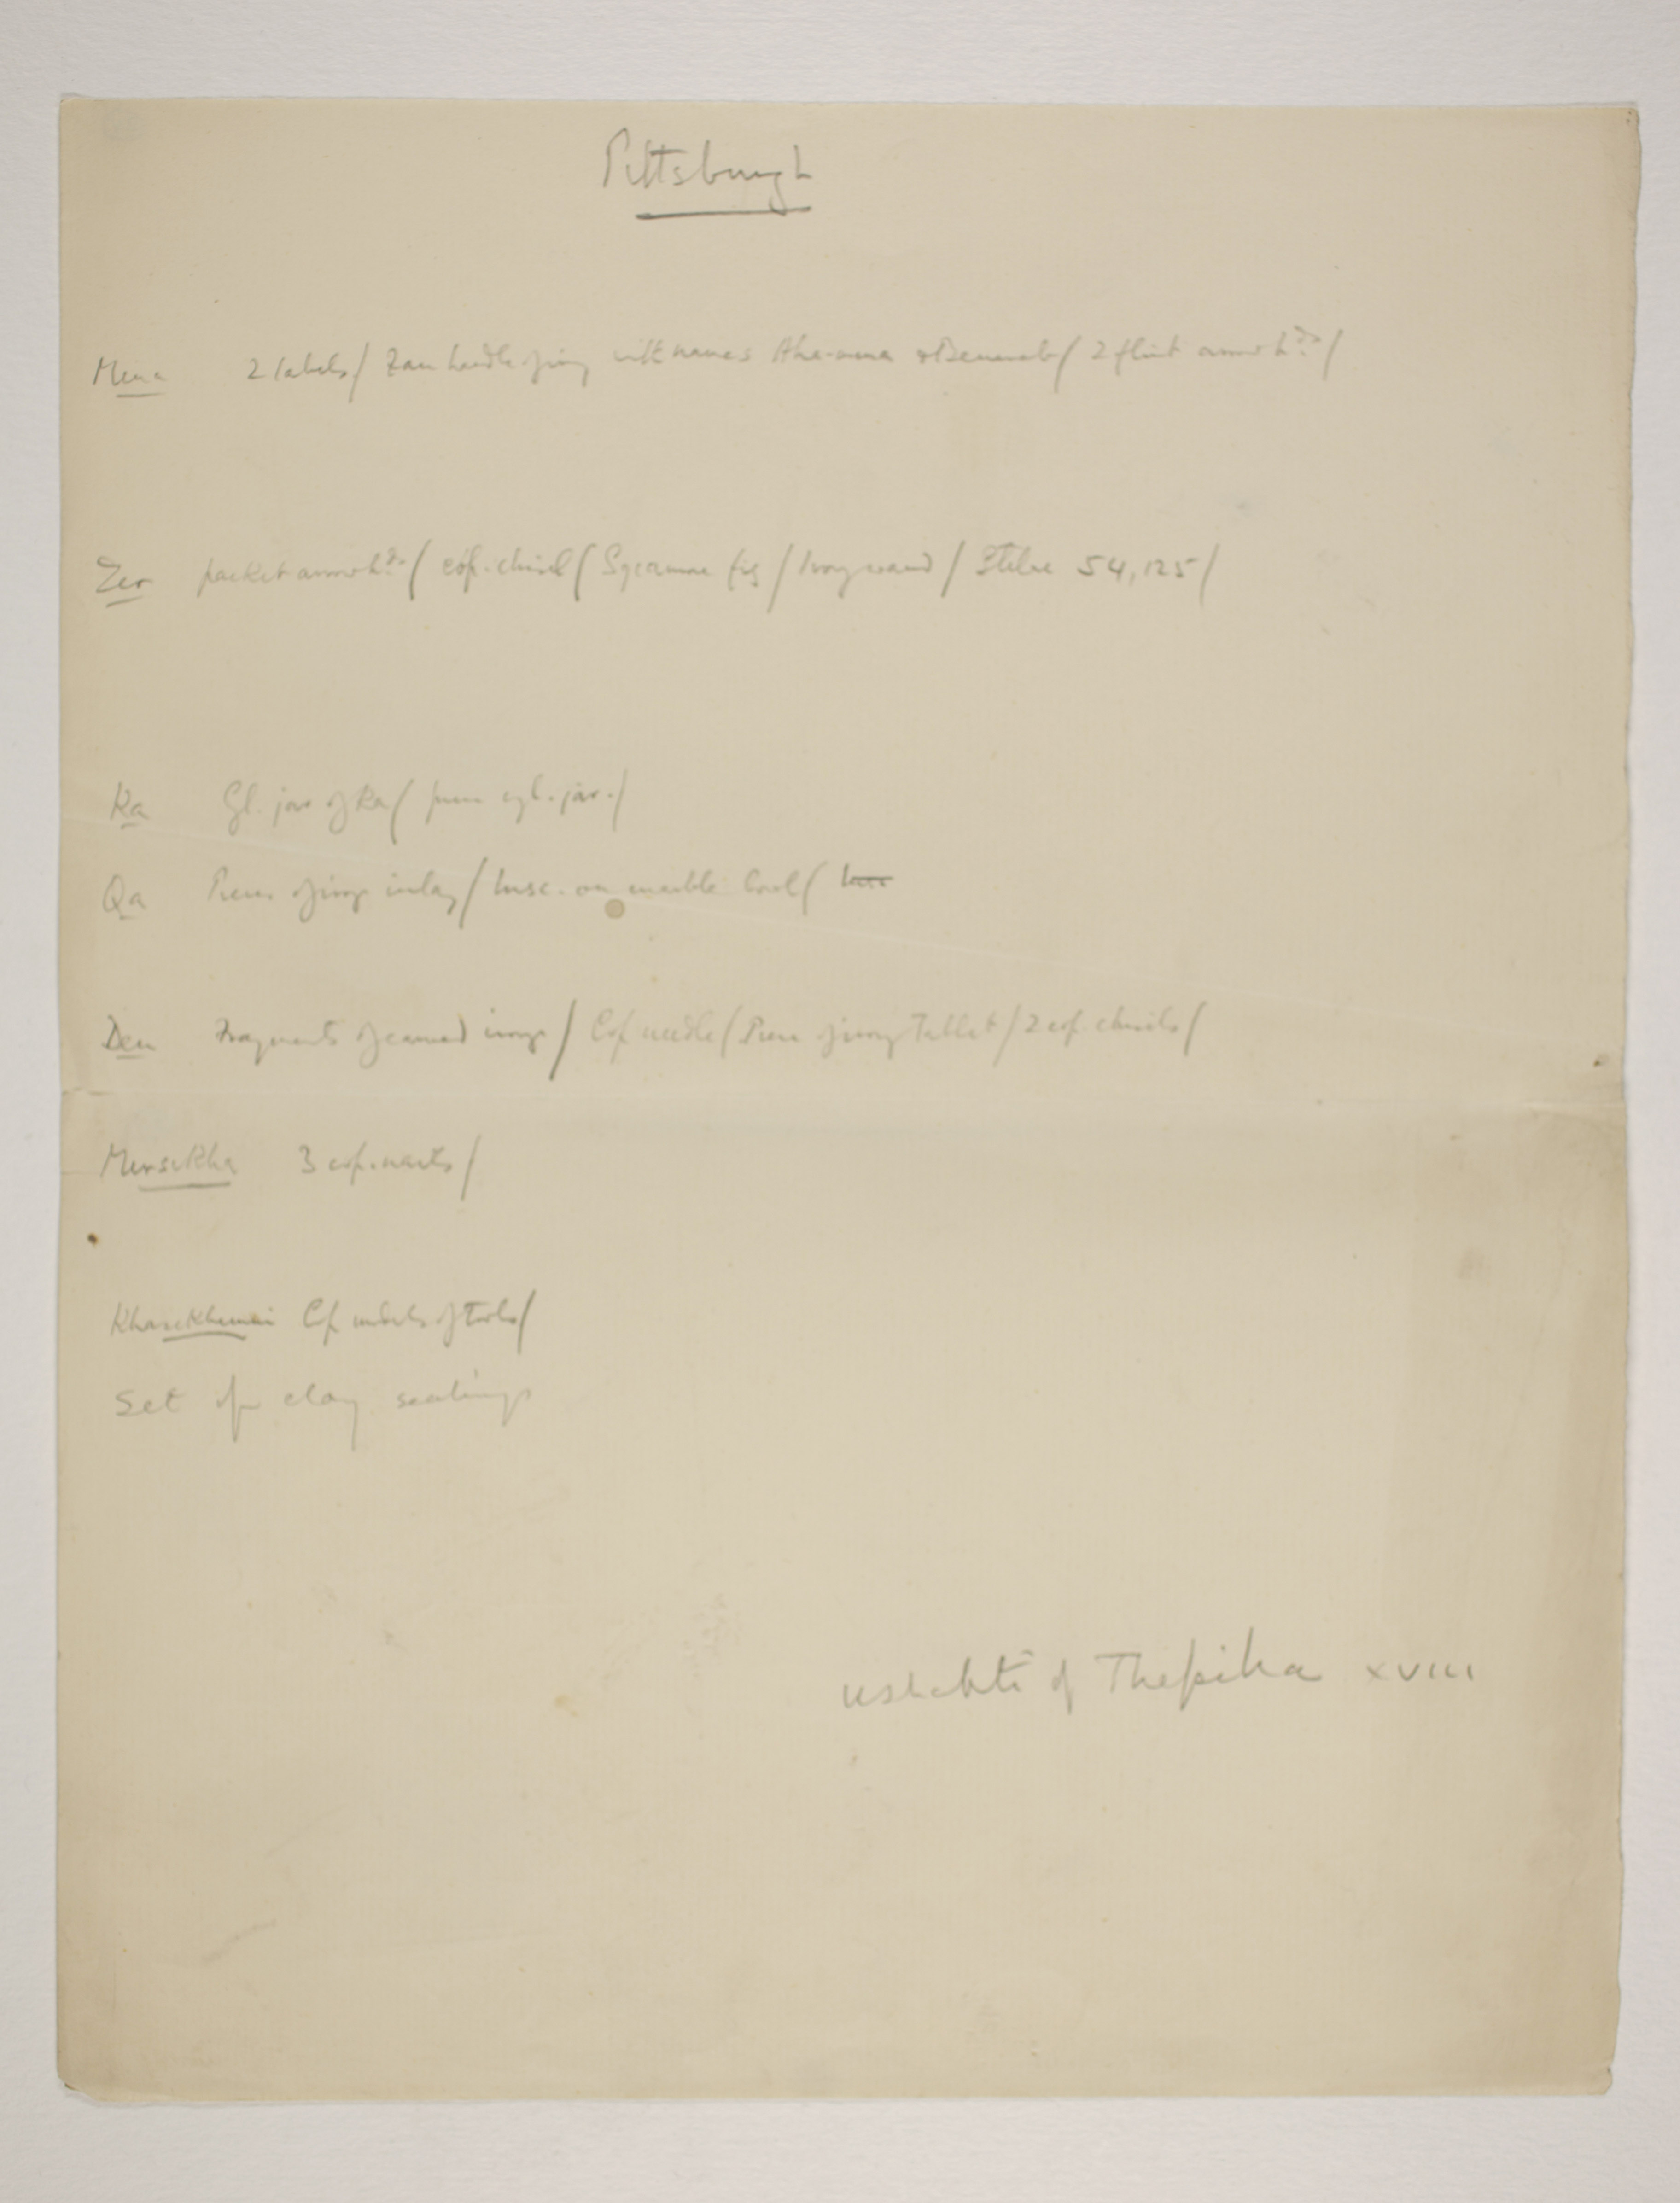 Pittsburgh
Mena 2 labels/ handle of ivory with names Aha-mena & Benerab/ 2 flint arrow hds/
Zer packet arrow hds/ cop. chisel/ Sycamore fig/ Ivory wand/ Stelae 54, 125/
Ka Gl. jar of Ka/ cyl. jar./
Qa Piece of ivory inlay/ Insc. on marble bowl/
Den Fragments of carved ivory/ Cop needle/ Piece of ivory Tablet/ 2 cop. chisels/
Mersekha 3 cop. nails/
Khasekhemui Cop models of Tools/
Set of clay sealings
Ushabti of Thepiha XVIII